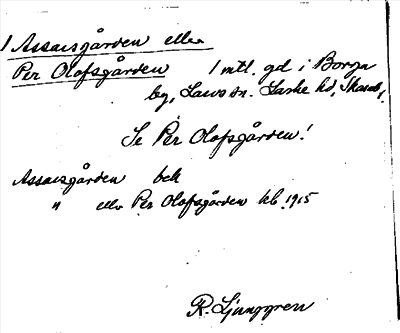 1 Assarsgården eller
Per Olofsgården 1 mtl. gd i Borga
by, Laws sn. Laske hd, Skarab.
Se Per Olofsgården!
Assarsgården beb
" eller Per Olofsgården kb 1915
R. Ljunggren